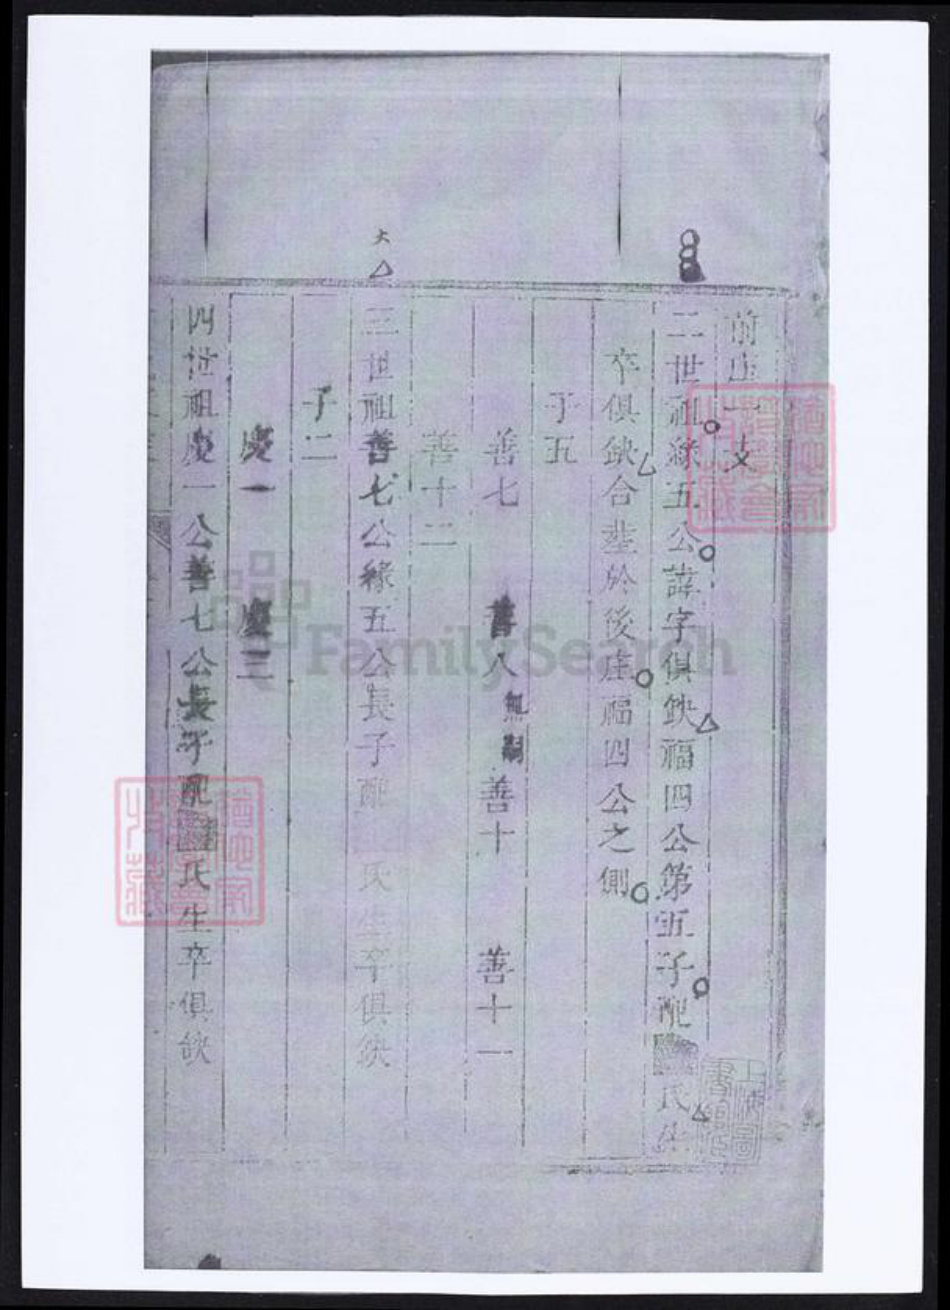 前山一支
二世祖緣五公諱字俱缺福四公第五子配 氏生
卒俱缺合塟於後庄福四公之側
子五
善七 善八無嗣 善十 善十一
善十二
三世祖善七公緣五公長子配 氏生卒俱缺
子二
慶一 慶三
四世祖慶一公善七公長子配 氏生卒俱缺
大
FamilySearch
上海圖書館藏